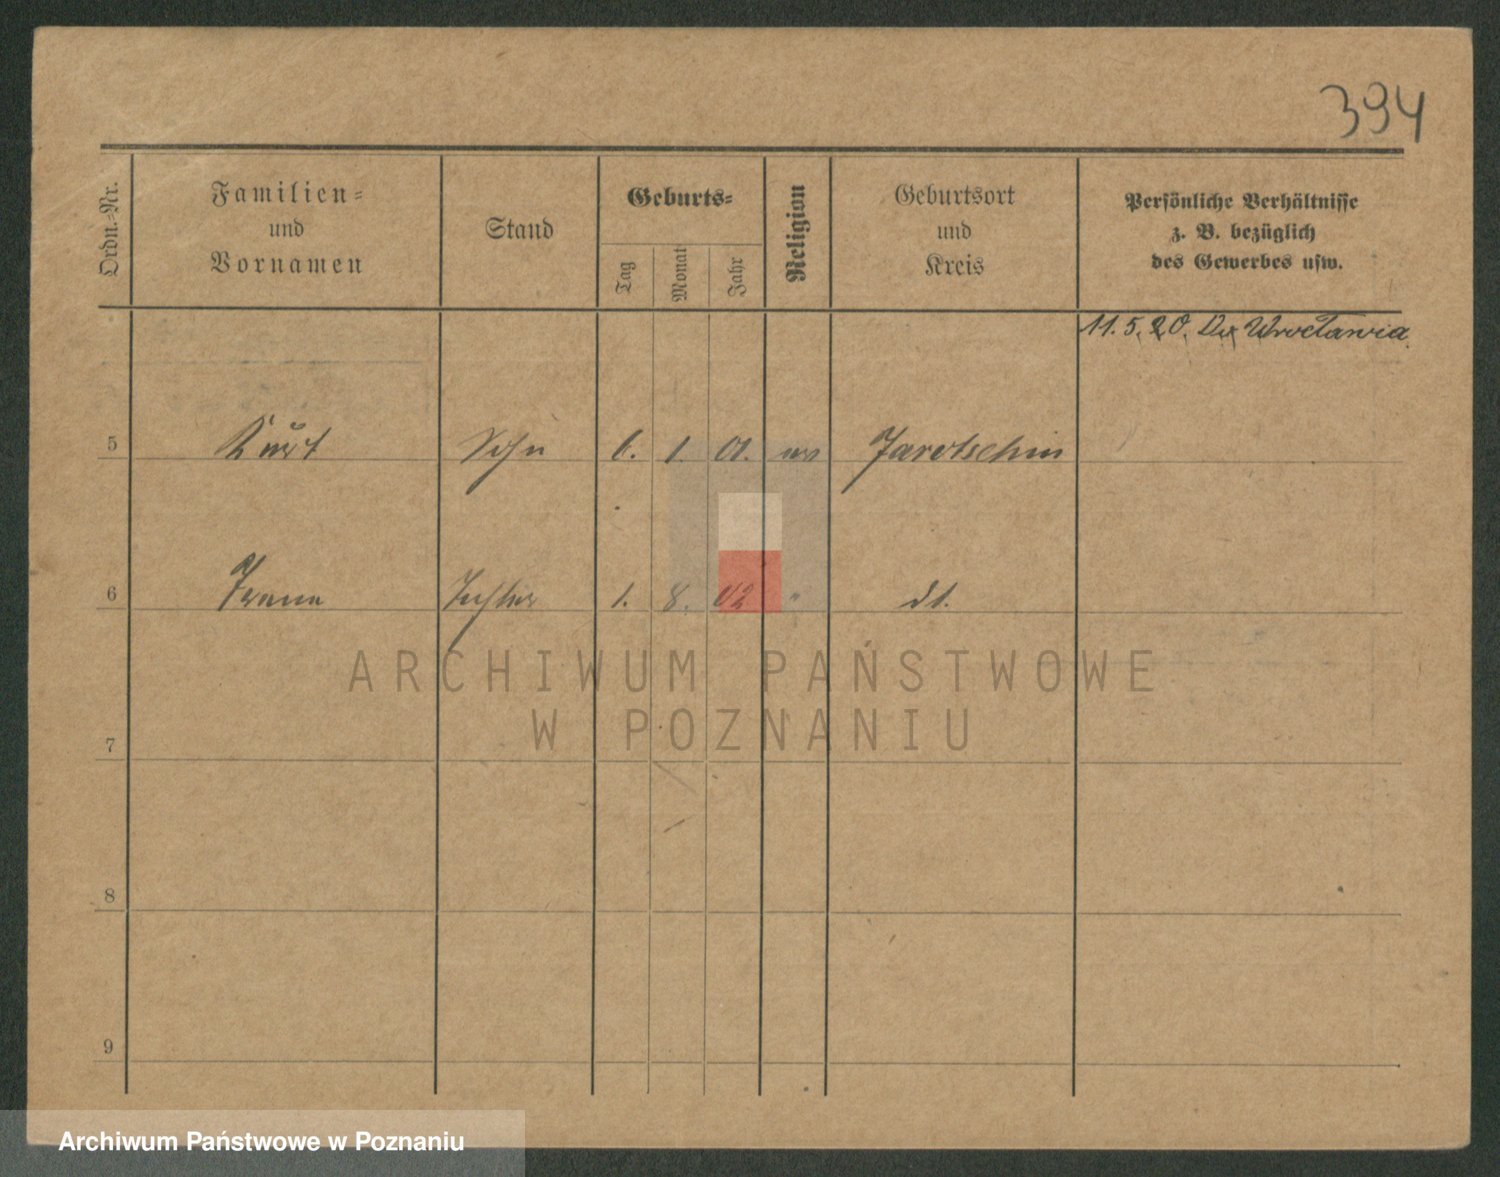 394
Ordn.-Nr.
Familien-
und
Vornamen
Stand
Geburts-
Tag
Monat
Jahr
Religion
Geburtsort
und
Kreis
Persönliche Verhältnisse
z. B. bezüglich
des Gewerbes usw.
11. 5. 20. Do Wrocławia
5 Kurt Sohn 6. 1. 01. Jarotschin
6 Irene Tochter 1. 8. 02 " dt.
ARCHIWUM PAŃSTWOWE
W POZNANIU
7
8
9
Archiwum Państwowe w Poznaniu